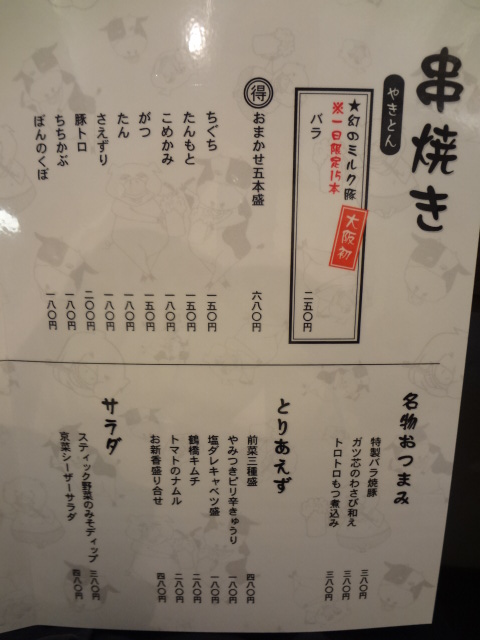 串焼き
やきとん
★幻のミルク豚
※一日限定15本
大阪初
バラ 二五〇円
得
おまかせ五本盛 六八〇円
ちぐち 一五〇円
たんもと 一五〇円
こめかみ 一八〇円
がつ 一五〇円
たん 一八〇円
さえずり 一八〇円
豚トロ 二〇〇円
ちちかぶ 一八〇円
ぼんのくぼ 一八〇円
名物おつまみ
特製バラ焼豚 三八〇円
ガツ芯のわさび和え 三八〇円
トロトロもつ煮込み 三八〇円
とりあえず
前菜三種盛 四八〇円
やみつきピリ辛きゅうり 一八〇円
塩ダレキャベツ盛 一八〇円
鶴橋キムチ 二八〇円
トマトのナムル 二八〇円
お新香盛り合せ 四八〇円
サラダ
スティック野菜のみそディップ 三八〇円
京菜シーザーサラダ 四八〇円